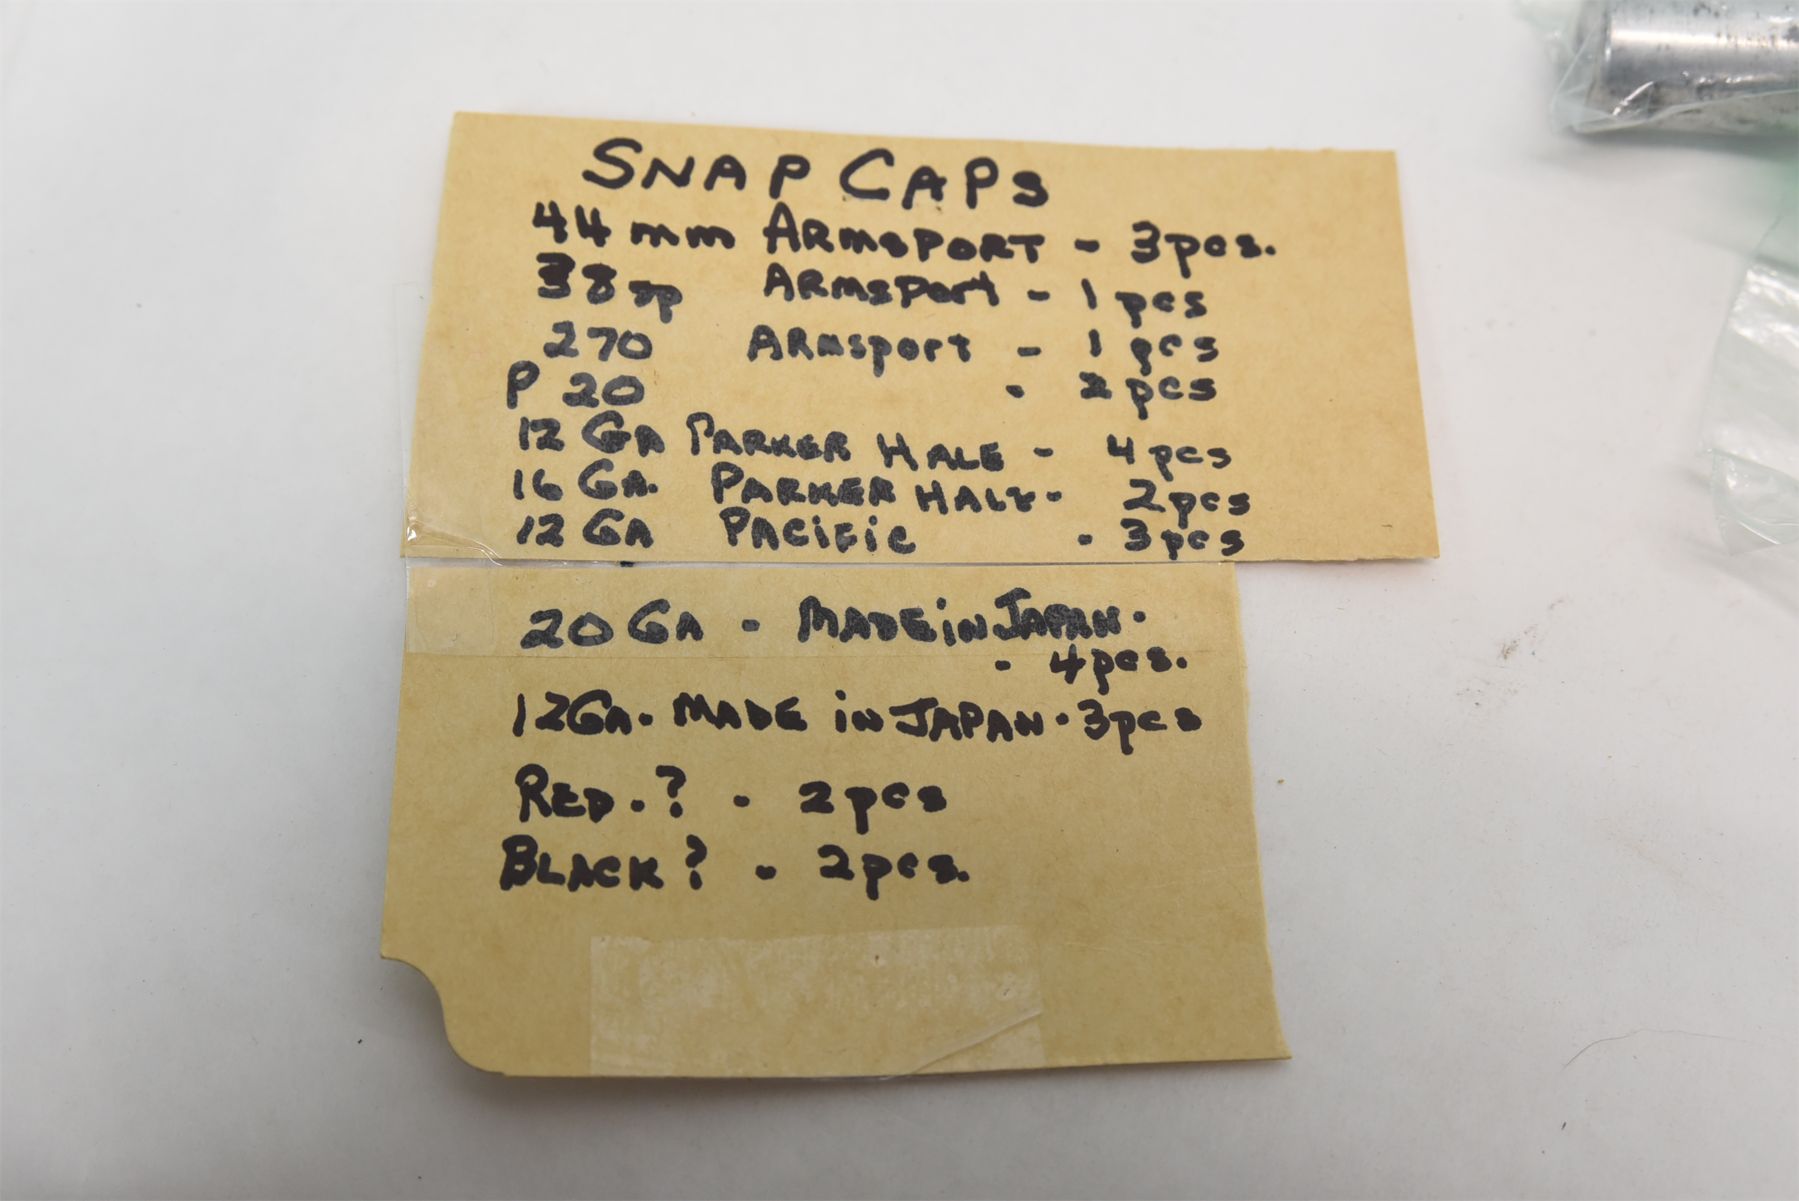 SNAP CAPS
44 mm ARMSPORT - 3pcs.
38 sp ARMSPORT - 1 pcs
270 ARMSPORT - 1 pcs
P 20 - 2 pcs
12 GA PARKER HALE - 4 pcs
16 GA. PARKER HALE - 2pcs
12 GA PACIFIC - 3pcs
20 GA - MADE IN JAPAN -
- 4pcs.
12GA. MADE IN JAPAN - 3pcs
RED - ? - 2 pcs
BLACK ? - 2pcs.